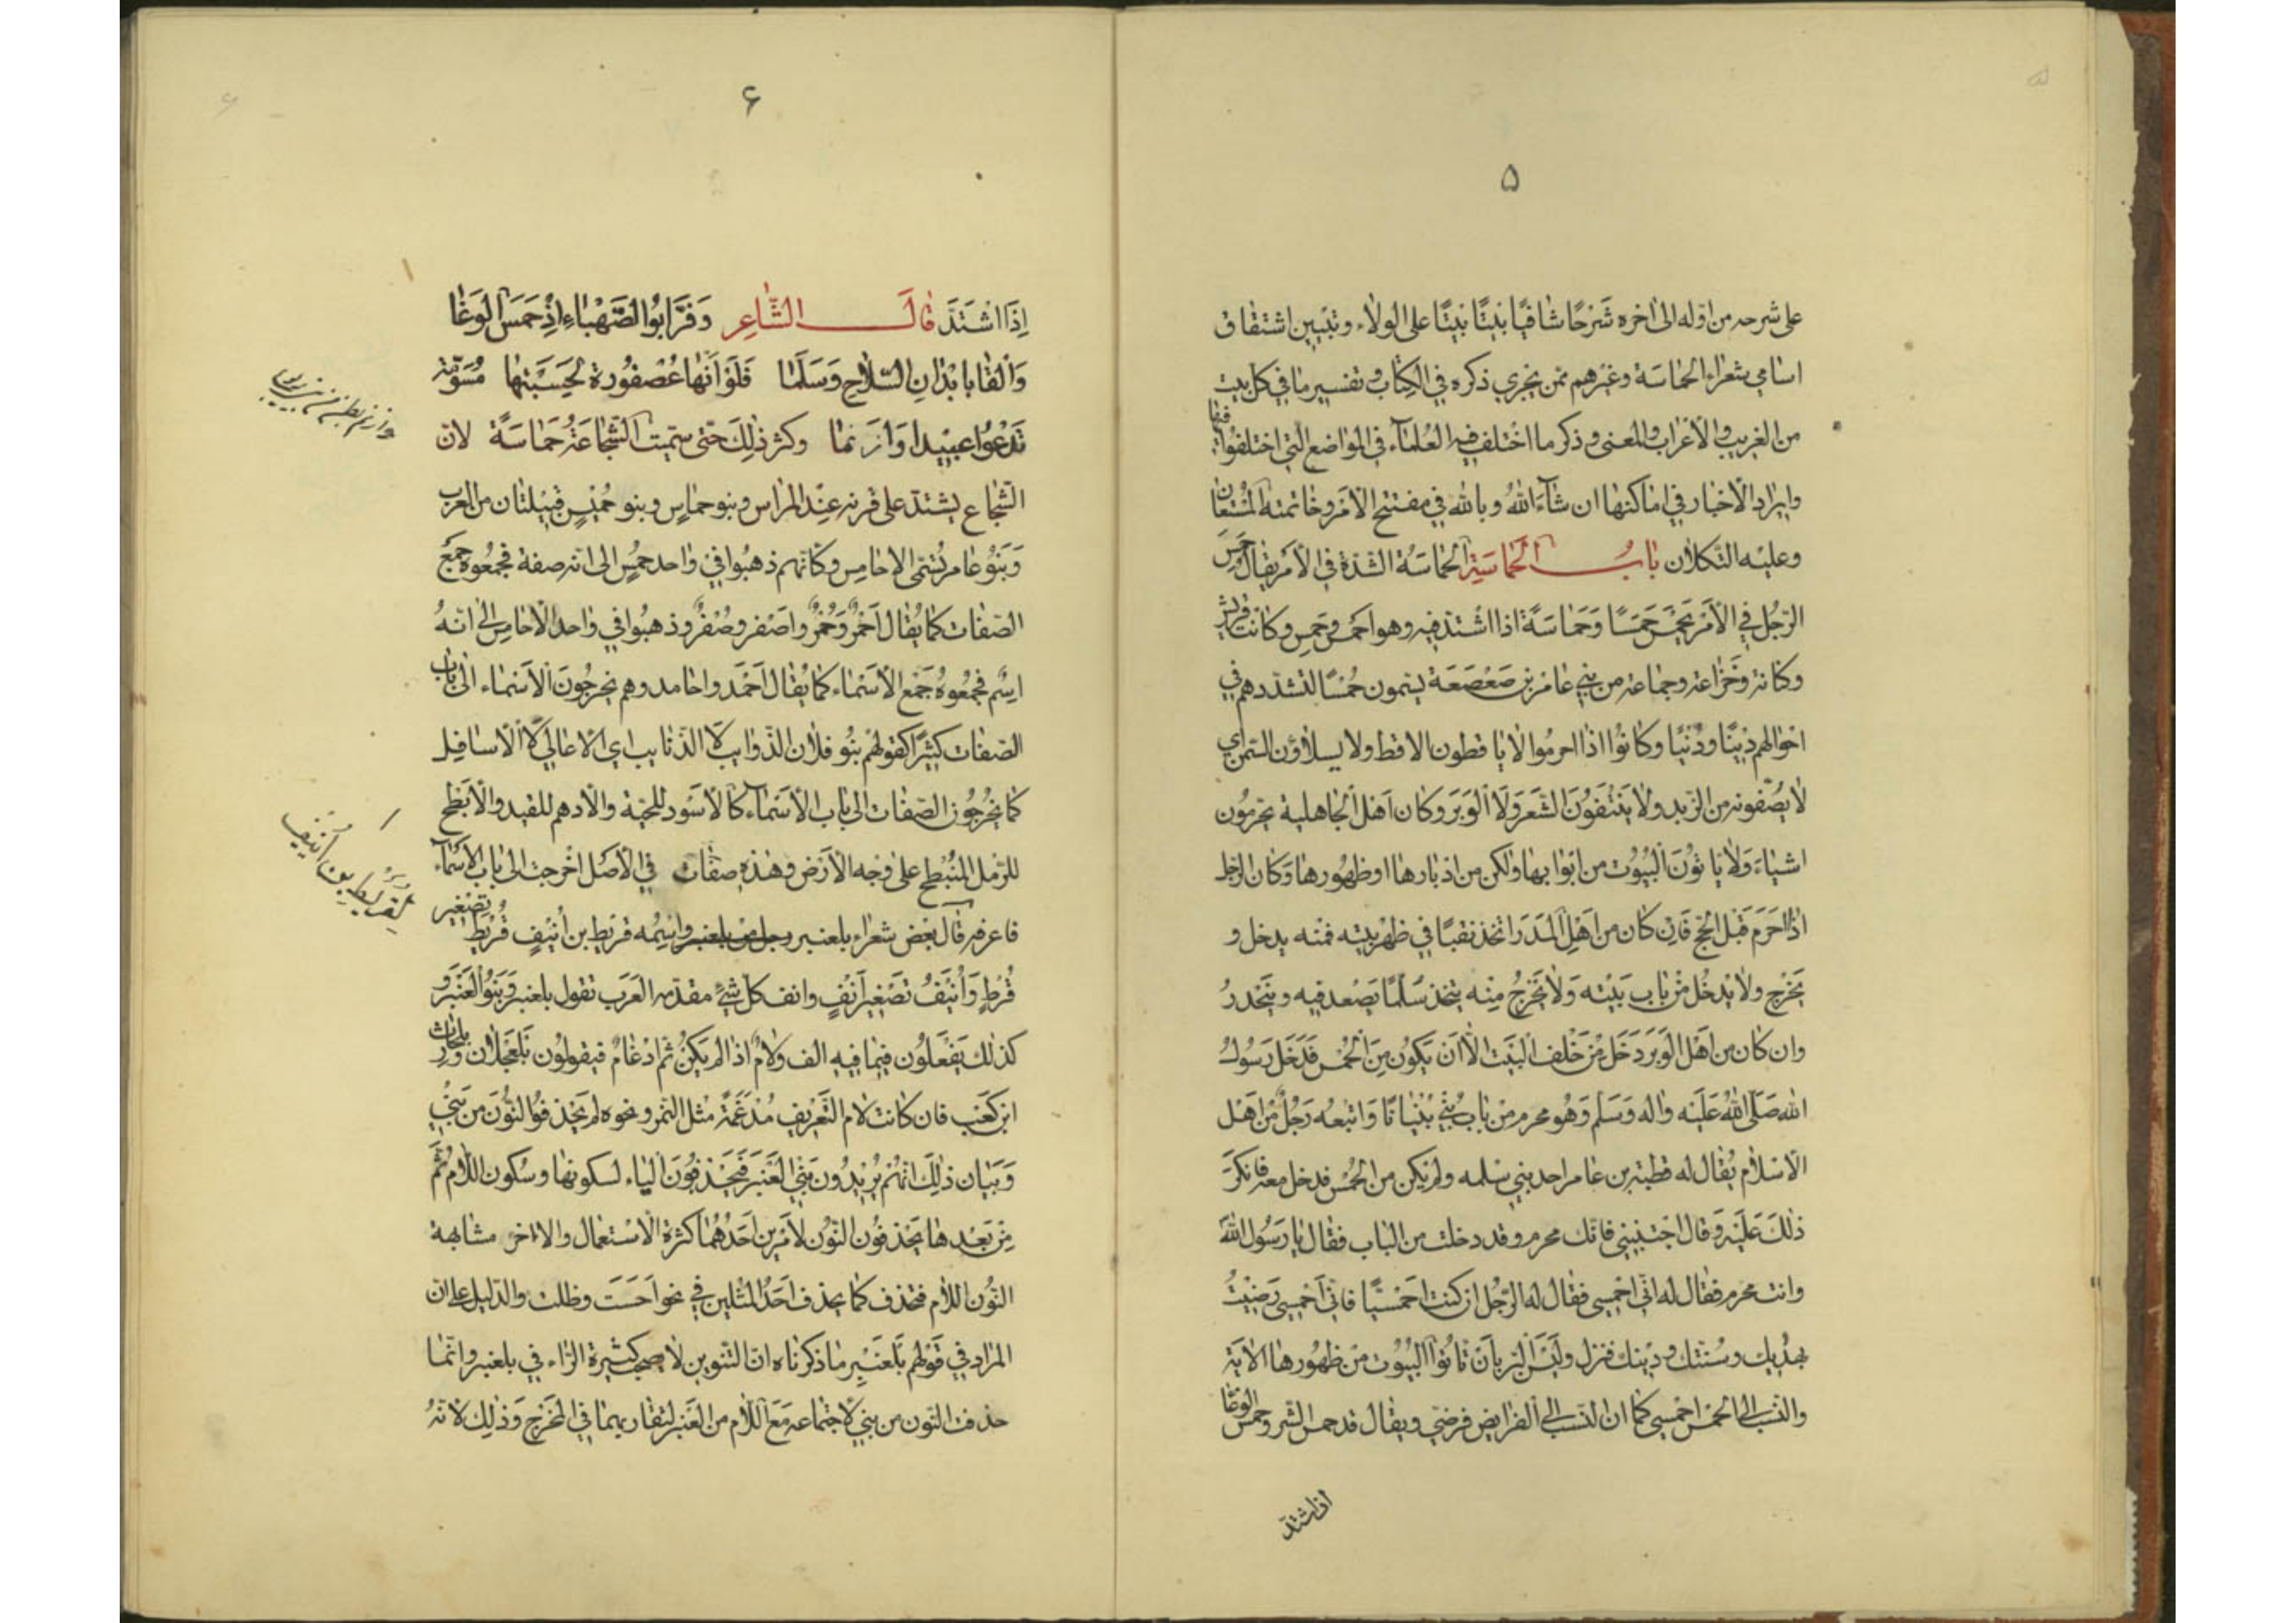 ۵
على شرحه من اوّله الى اخره شَرْحًا شافيًا بَيتًا بَيتًا على الولاء وتبيين اشتقاق
اسامي شعراء الحماسة وغيرهم ممّن يجري ذكره في الكتاب وتفسير ما في كل بيت
من الغريب والاعراب والمعنى وذكر ما اختلف فيه العُلماء في المواضع التي اختلفوا فيها
وايراد الاخبار في اماكنها ان شآء اللهُ وبالله في مفتتح الامر وخاتمته المُسْتعان
وعليه التكلان بابُ الحَماسَةِ الحماسَةُ الشدّة في الامر يقال حَمِسَ
الرّجُل في الاَمْر يَحْمَسُ حَمَسًا وَحَماسَةً اذا اشتدّ فيه وهو احمس وحَمِس وكانت قريش
وكنانة وخُزاعة وجماعة من بني عامر بن صَعْصَعَة يسمون حُمْسًا لتشدّدهم في
احوالهم دينًا ودُنْيًا وكانُوا اذا احرمُوا لا ياقطون الاقط ولا يسلاؤن السّمن اي
لا يُصَفّونه من الزّبد ولا يَنْتِفُونَ الشَّعَرَ وَلَا الْوَبَرَ وكان اَهْل الجاهلية يحرمُون
اشياءَ وَلا ياتُونَ البُيُوت من ابوابها ولكن من ادبارها او ظهُورها وَكان الرّجل
اذا اَحْرَم قَبْل الحَجّ فَاِن كان من اَهْلِ المَدَر اتّخذ نقبًا في ظهر بيته فمنه يدخل و
يَخرُج ولا يدْخُل مِنْ باب بَيْته وَلا يَخْرُج مِنْه يتّخذ سُلّمًا يَصْعد فيه وينحدرُ
وان كان من اَهْل الوَبَر دَخَل مِنْ خَلْف البَيْت الّا اَن يَكُون مِنَ الحُمْس فَدَخَل رَسُولُ
الله صَلّى اللهُ عَلَيْه واله وَسَلم وَهُو محرم من باب بُنِيَ بُنْيانًا وَاتبعُه رَجُلٌ مِنْ اَهْل
الاسْلام يُقال له قطبة بن عامر احد بني سلمه ولم يكن من الحُمْس فدخل معه فانكرَ
ذلك عَلَيْه وَقال اجتنبني فانّك محرم وقد دخلت من الباب فقال يا رَسُول الله
وانت محرم فقال له انّي احْمسي فقال له الرّجُل ان كنت احْمَسيًّا فانّي احْمسي رَضيْتُ
بهديك وسُنّتك ودينك فنزل وليْسَ البرّ باَنْ تاتُوا البُيُوت من ظهُورها الاية
والنّسب الى الحمس احْمسي كما ان النّسب الى الفرايض فرضيّ ويقال قد حمس الشر وحمس الوغا
اذا اشتدّ
۶
اِذَا اشْتَدَّ قالَ الشّاعِر وَفَرَّ ابُو الصَّهْبَاءِ اِذْ حَمَسَ الْوَغَا
وَاَلْقَا بابْدَانِ السِّلاحِ وَسَلَّمَا فَلَوْ اَنَّها عُصْفُورة لَحَسَبْتها مُسَوّمة
تَدْعُوا عبيدا وَازنما وكثر ذلِكَ حَتّى سمّيت الشّجاعَةُ حَمَاسَةً لانّ
الشّجاع يشتدّ على قرنه عِنْد المراس وبنو حماسٍ وبنو حُمَيْسٍ قبيلتان من العرب
وَبَنُو عامر تُسَمّى الاحامِس وكانّهم ذهبُوا في واحد حُمْسٍ الى انّه صفة فجمعُوه جَمْعَ
الصّفات كما يُقال اَحْمَرُ وَحُمْرٌ واصْفر وصُفْرٌ وذهبُوا في واحد الاحامِس الى انهُ
اسم فجمعُوهُ جَمْع الاسْماء كما يُقال اَحْمَد واحامد وهم يخرجُونَ الاَسْماء الى باب
الصّفات كثيرًا كقولهم بنُو فلان الذّوايب لا الذّنايب اي الاعالي لا الاسافِل
كما يُخرجُون الصّفات الى باب الاسْمآء كالاسْود للحيّة والادهم للقيد والابْطح
للرّمل المُنْبطح على وَجْه الارْض وهذه صفات في الاصْل اخْرجت الى باب الاسْمآء
فاعرفه قال بعض شعراء بلعنبر رجل من بلعنبر واسْمه قريط بن انَيْف قُرَيْط تصْغير
قُرْط وَاُنَيْفُ تصْغير اَنْفٍ وانف كلّ شَيْءٍ مقدّمه العَرَب تقول بلعنبر وَبَنُو العَنْبَر و
كذلك يَفْعَلُون فيما فيه الف ولامٌ اذا لم يَكنْ ثم ادْغامٌ فيقولُون بَلْعجْلان وَبلحارث
ابن كعْب فان كانت لام التّعريف مُدْغَمَةً مثل النّمر ونحوه لم يَحْذفوُا النّونَ من بَني
وَبَيان ذلِكَ انهُمْ يُريْدُون بَني العَنْبَر فَيَحْذفُونَ الياء لسكونها وسُكون اللّام ثُمّ
مِنْ بَعْدها يَحْذفُون النّوُن لاَمْرين اَحَدُهُما كثرة الاسْتعمال والاخر مشابهة
النّوُن اللّام فتحذف كما يحذف احَدُ المثْلين في نحو اَحَسْتَ وظلت والدّليل على ان
المراد في قوْلهم بلعنبر ما ذكرناه انّ التنوين لا يصحب كسْرة الرّاء في بلعنبر وانّما
حذفت النّون من بني لاجتماعه مَعَ اللّام من العَنْبر لتقاربهما في المخرج وَذلِك لانّهُ
قريط بن اُنَيْف